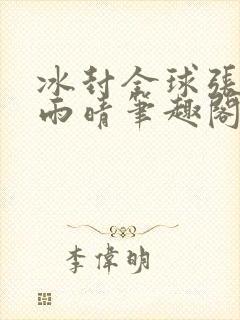 冰封全球張
雨晴筆趣閣
李偉明